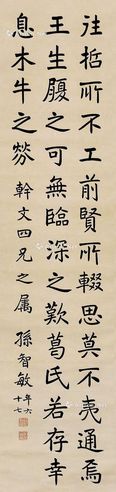 往哲所不工前賢所輟思莫不夷通焉
王生腹之可無臨深之歎葛氏若存幸
息木牛之勞
幹文四兄之属 孫智敏
年六
十七